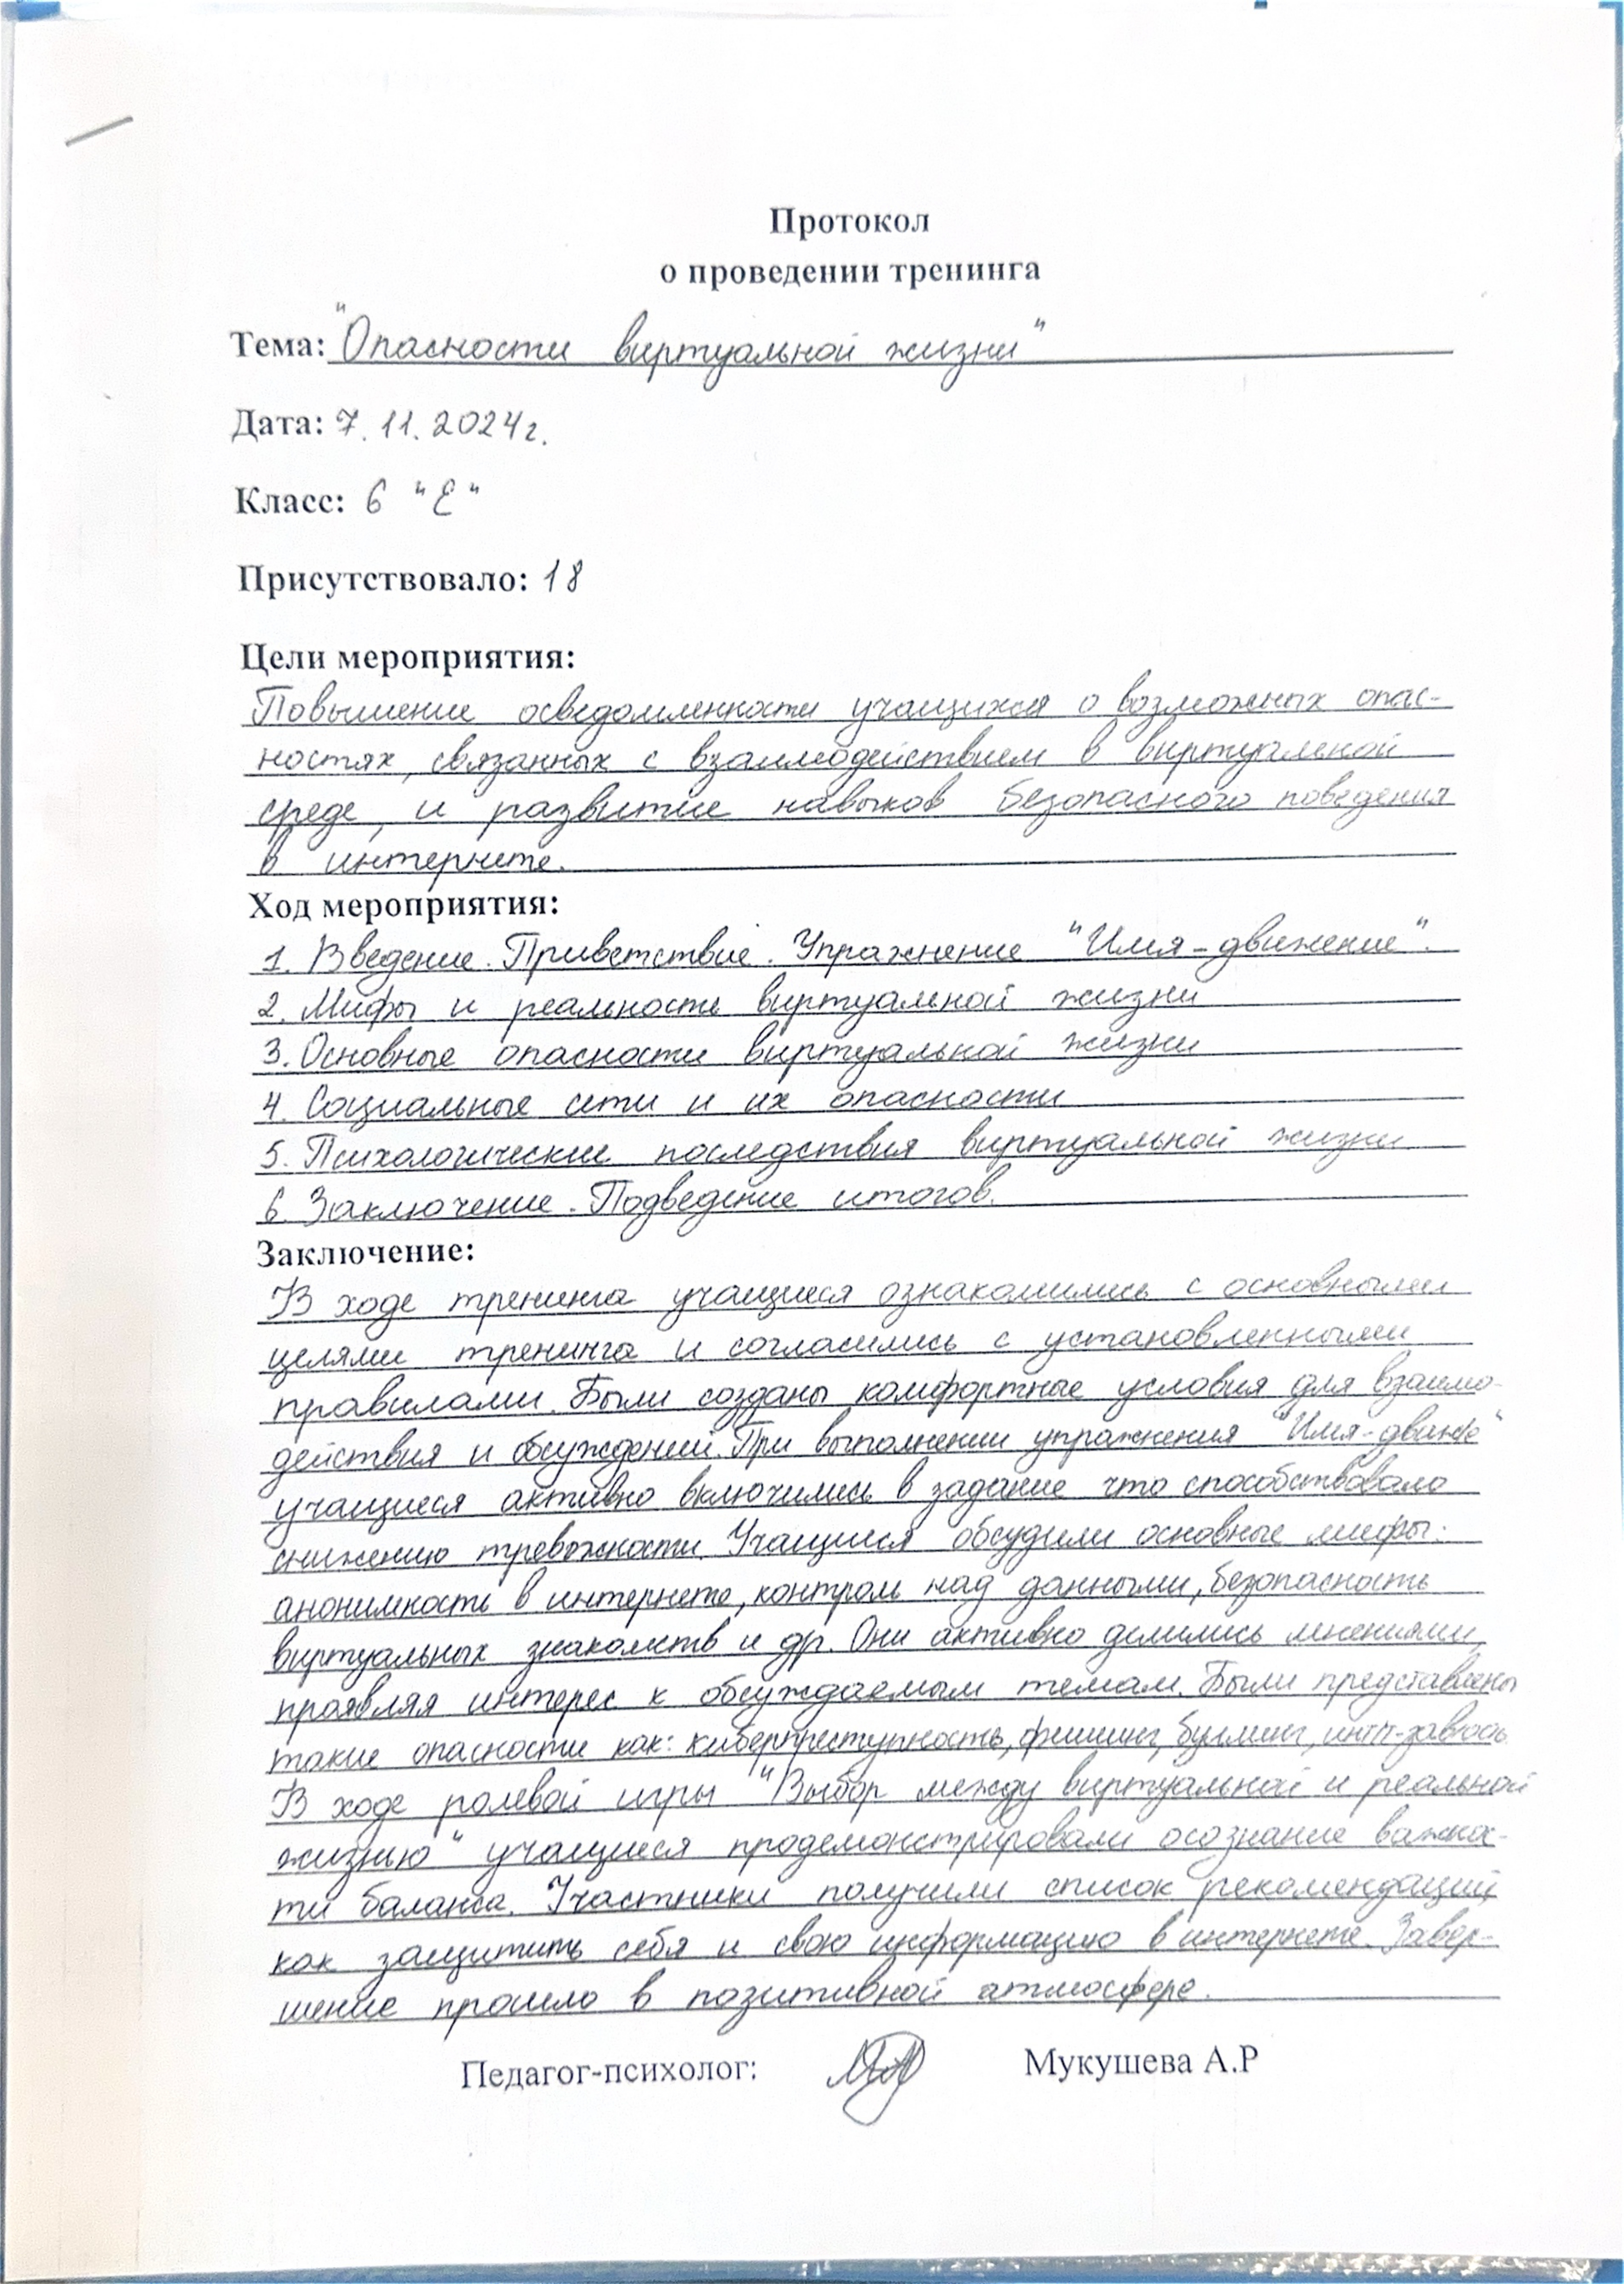 Протокол
о проведении тренинга
Тема: "Опасности виртуальной жизни"
Дата: 7.11.2024г.
Класс: 6 "Е"
Присутствовало: 18
Цели мероприятия:
Повышение осведомленности учащихся о возможных опас-
ностях, связанных с взаимодействием в виртуальной
среде, и развитие навыков безопасного поведения
в интернете.
Ход мероприятия:
1. Введение. Приветствие. Упражнение "Имя-движение".
2. Мифы и реальность виртуальной жизни
3. Основные опасности виртуальной жизни
4. Социальные сети и их опасности
5. Психологические последствия виртуальной жизни
6. Заключение. Подведение итогов.
Заключение:
В ходе тренинга учащиеся ознакомились с основными
целями тренинга и согласились с установленными
правилами. Были созданы комфортные условия для взаимо-
действия и обсуждений. При выполнении упражнения "Имя-
учащиеся активно включились в задание что способствовало
снижению тревожности. Учащиеся обсудили основные мифы:
анонимность в интернете, контроль над данными, безопасность
виртуальных знакомств и др. Они активно делились мнениями,
проявляя интерес к обсуждаемым темам. Были представлены
такие опасности как: киберпреступность, фишинг, буллинг,
В ходе ролевой игры "Выбор между виртуальной и реальной
жизнью" учащиеся продемонстрировали осознание важнос-
ти баланса. Участники получили список рекомендаций,
как защитить себя и свою информацию в интернете. Завер-
шение прошло в позитивной атмосфере.
Педагог-психолог: Мукушева А.Р